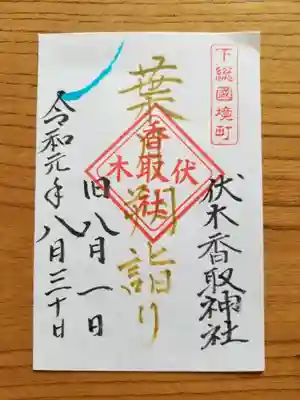 下総國境町
伏木香取神社
葉月朔詣り
伏木
香取社
旧八月一日
令和元年八月三十日